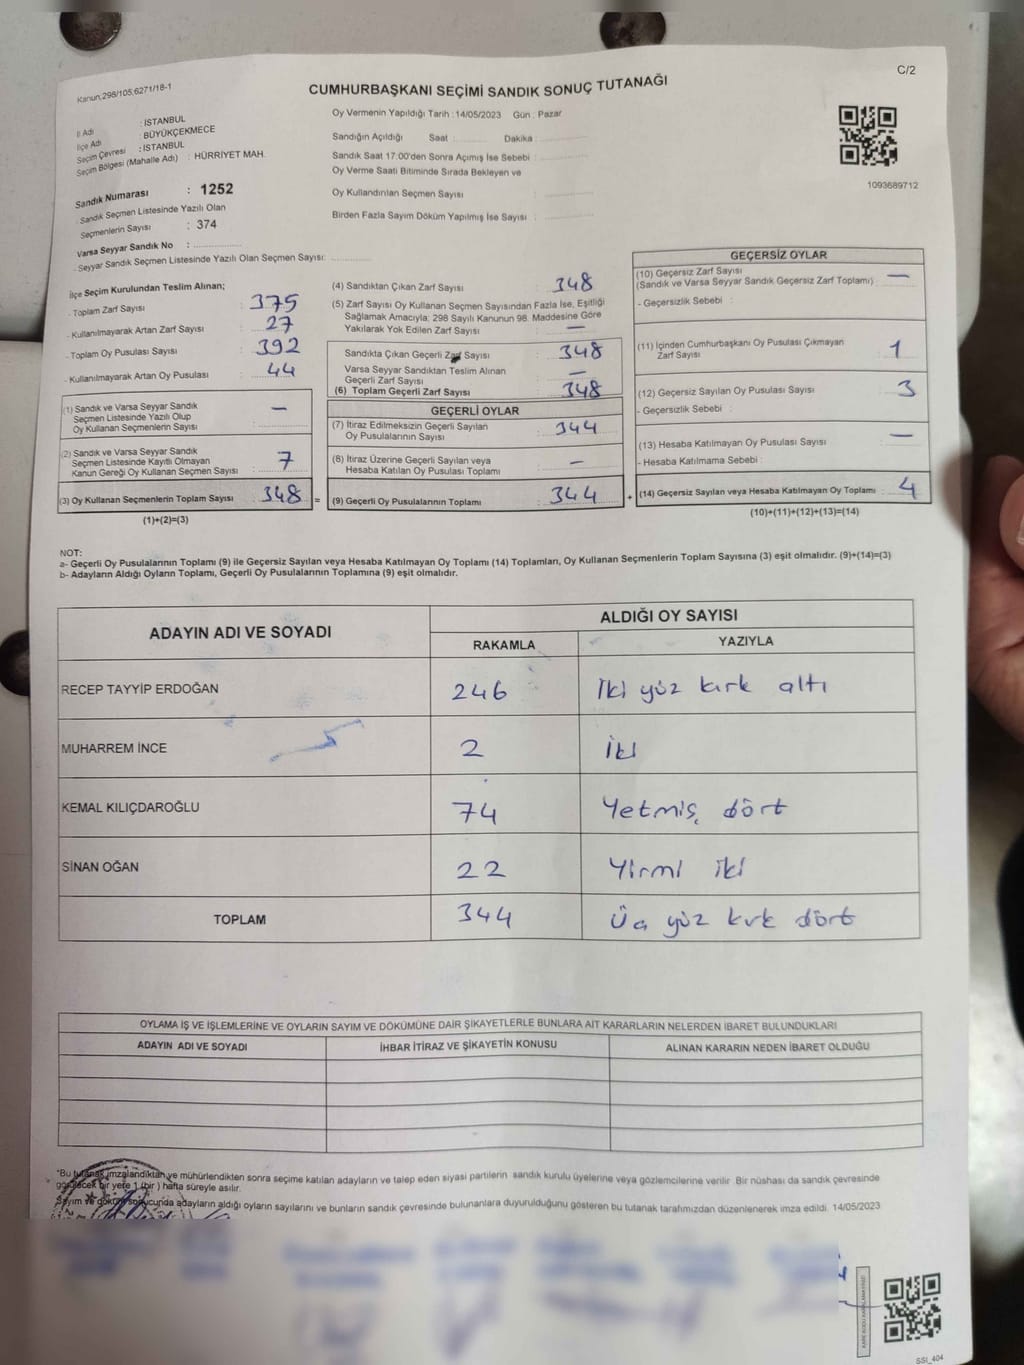 C/2
Kanun;298/105;6271/18-1
CUMHURBAŞKANI SEÇİMİ SANDIK SONUÇ TUTANAĞI
İl Adı : İSTANBUL
İlçe Adı : BÜYÜKÇEKMECE
Seçim Çevresi : İSTANBUL
Seçim Bölgesi (Mahalle Adı) : HÜRRİYET MAH.
Sandık Numarası : 1252
- Sandık Seçmen Listesinde Yazılı Olan
Seçmenlerin Sayısı : 374
Varsa Seyyar Sandık No :
- Seyyar Sandık Seçmen Listesinde Yazılı Olan Seçmen Sayısı:
Oy Vermenin Yapıldığı Tarih :14/05/2023 Gün : Pazar
Sandığın Açıldığı Saat : Dakika :
Sandık Saat 17:00'den Sonra Açımış İse Sebebi :
Oy Verme Saati Bitiminde Sırada Bekleyen ve
Oy Kullandırılan Seçmen Sayısı :
Birden Fazla Sayım Döküm Yapılmış İse Sayısı :
1093689712
İlçe Seçim Kurulundan Teslim Alınan;
- Toplam Zarf Sayısı : 375
- Kullanılmayarak Artan Zarf Sayısı : 27
- Toplam Oy Pusulası Sayısı : 392
- Kullanılmayarak Artan Oy Pusulası : 44
(1) Sandık ve Varsa Seyyar Sandık
Seçmen Listesinde Yazılı Olup
Oy Kullanan Seçmenlerin Sayısı : —
(2) Sandık ve Varsa Seyyar Sandık
Seçmen Listesinde Kayıtlı Olmayan
Kanun Gereği Oy Kullanan Seçmen Sayısı : 7
(3) Oy Kullanan Seçmenlerin Toplam Sayısı : 348 =
(1)+(2)=(3)
(4) Sandıktan Çıkan Zarf Sayısı : 348
(5) Zarf Sayısı Oy Kullanan Seçmen Sayısından Fazla İse, Eşitliği
Sağlamak Amacıyla; 298 Sayılı Kanunun 98. Maddesine Göre
Yakılarak Yok Edilen Zarf Sayısı : —
Sandıkta Çıkan Geçerli Zarf Sayısı : 348
Varsa Seyyar Sandıktan Teslim Alınan
Geçerli Zarf Sayısı : —
(6) Toplam Geçerli Zarf Sayısı : 348
GEÇERLİ OYLAR
(7) İtiraz Edilmeksizin Geçerli Sayılan
Oy Pusulalarının Sayısı : 344
(8) İtiraz Üzerine Geçerli Sayılan veya
Hesaba Katılan Oy Pusulası Toplamı : —
(9) Geçerli Oy Pusulalarının Toplamı : 344 +
GEÇERSİZ OYLAR
(10) Geçersiz Zarf Sayısı
(Sandık ve Varsa Seyyar Sandık Geçersiz Zarf Toplamı) : —
- Geçersizlik Sebebi :
(11) İçinden Cumhurbaşkanı Oy Pusulası Çıkmayan
Zarf Sayısı : 1
(12) Geçersiz Sayılan Oy Pusulası Sayısı : 3
- Geçersizlik Sebebi :
(13) Hesaba Katılmayan Oy Pusulası Sayısı : —
- Hesaba Katılmama Sebebi :
(14) Geçersiz Sayılan veya Hesaba Katılmayan Oy Toplamı : 4
(10)+(11)+(12)+(13)=(14)
NOT:
a- Geçerli Oy Pusulalarının Toplamı (9) ile Geçersiz Sayılan veya Hesaba Katılmayan Oy Toplamı (14) Toplamları, Oy Kullanan Seçmenlerin Toplam Sayısına (3) eşit olmalıdır. (9)+(14)=(3)
b- Adayların Aldığı Oyların Toplamı, Geçerli Oy Pusulalarının Toplamına (9) eşit olmalıdır.
ADAYIN ADI VE SOYADI ALDIĞI OY SAYISI
RAKAMLA YAZIYLA
RECEP TAYYİP ERDOĞAN 246 iki yüz kırk altı
MUHARREM İNCE 2 iki
KEMAL KILIÇDAROĞLU 74 Yetmiş dört
SİNAN OĞAN 22 Yirmi iki
TOPLAM 344 Üç yüz kırk dört
OYLAMA İŞ VE İŞLEMLERİNE VE OYLARIN SAYIM VE DÖKÜMÜNE DAİR ŞİKAYETLERLE BUNLARA AİT KARARLARIN NELERDEN İBARET BULUNDUKLARI
ADAYIN ADI VE SOYADI İHBAR İTİRAZ VE ŞİKAYETİN KONUSU ALINAN KARARIN NEDEN İBARET OLDUĞU
*Bu tutanak imzalandıktan ve mühürlendikten sonra seçime katılan adayların ve talep eden siyasi partilerin sandık kurulu üyelerine veya gözlemcilerine verilir. Bir nüshası da sandık çevresinde
görülecek bir yere 1 (bir ) hafta süreyle asılır.
Sayım ve döküm sonucunda adayların aldığı oyların sayılarını ve bunların sandık çevresinde bulunanlara duyurulduğunu gösteren bu tutanak tarafımızdan düzenlenerek imza edildi. 14/05/2023
SSI_404